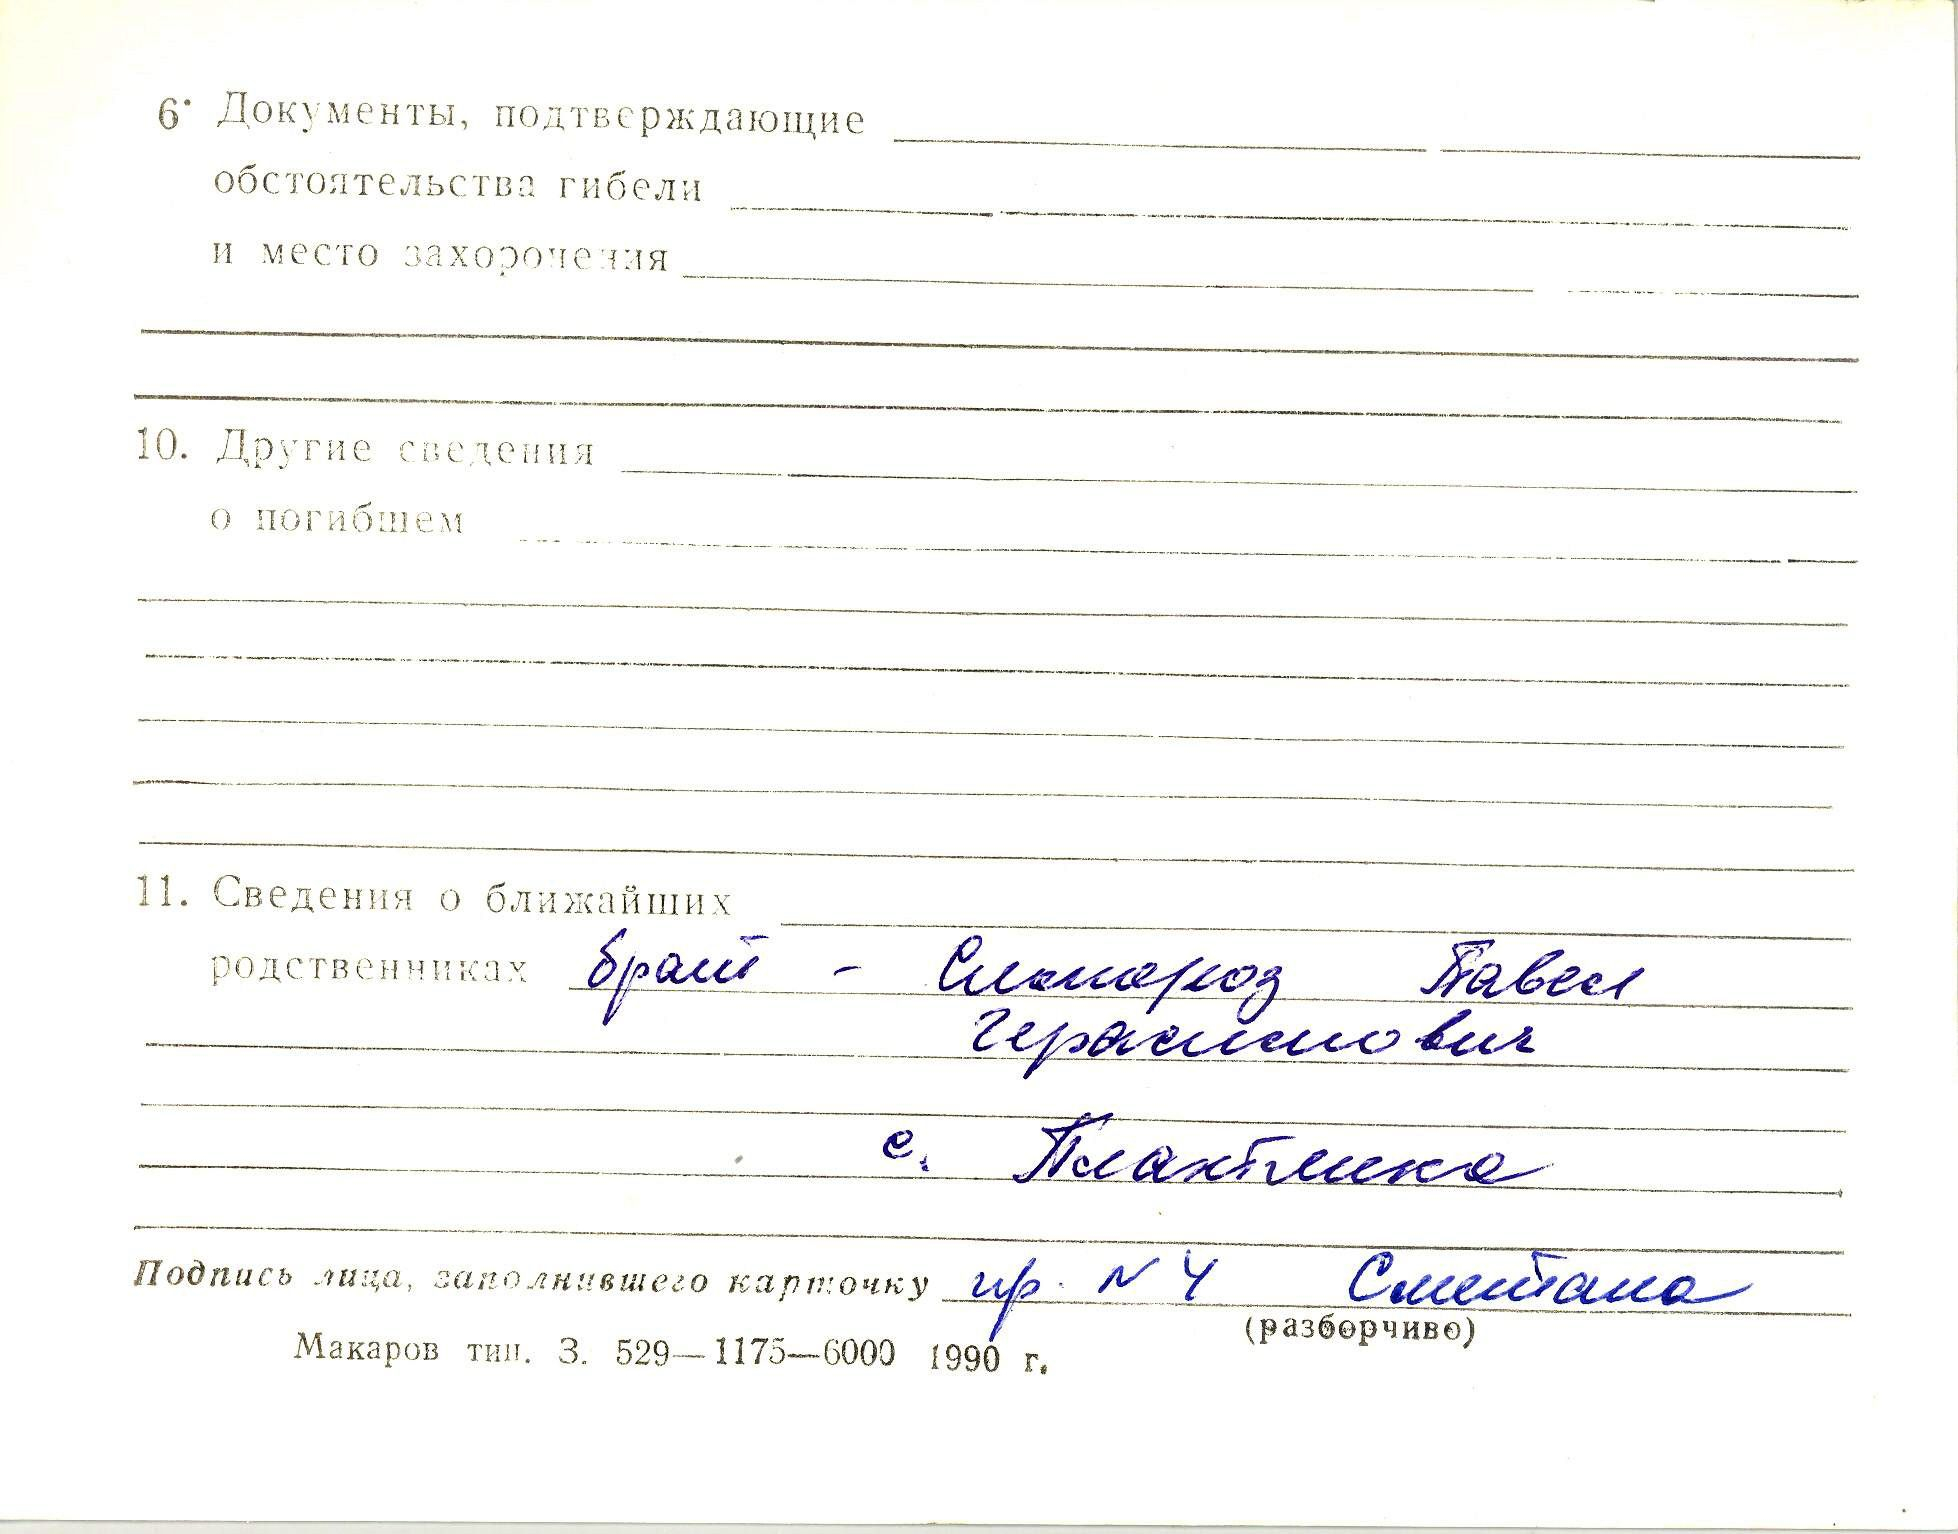 6. Документы, подтверждающие
обстоятельства гибели
и место захоронения
10. Другие сведения
о погибшем
11. Сведения о ближайших
родственниках брат - Слапороз Павел
Герасимович
с. Плахтинка
Подпись лица, заполнившего карточку пр. N 4 Сметана
(разборчиво)
Макаров тип. З. 529—1175—6000 1990 г.